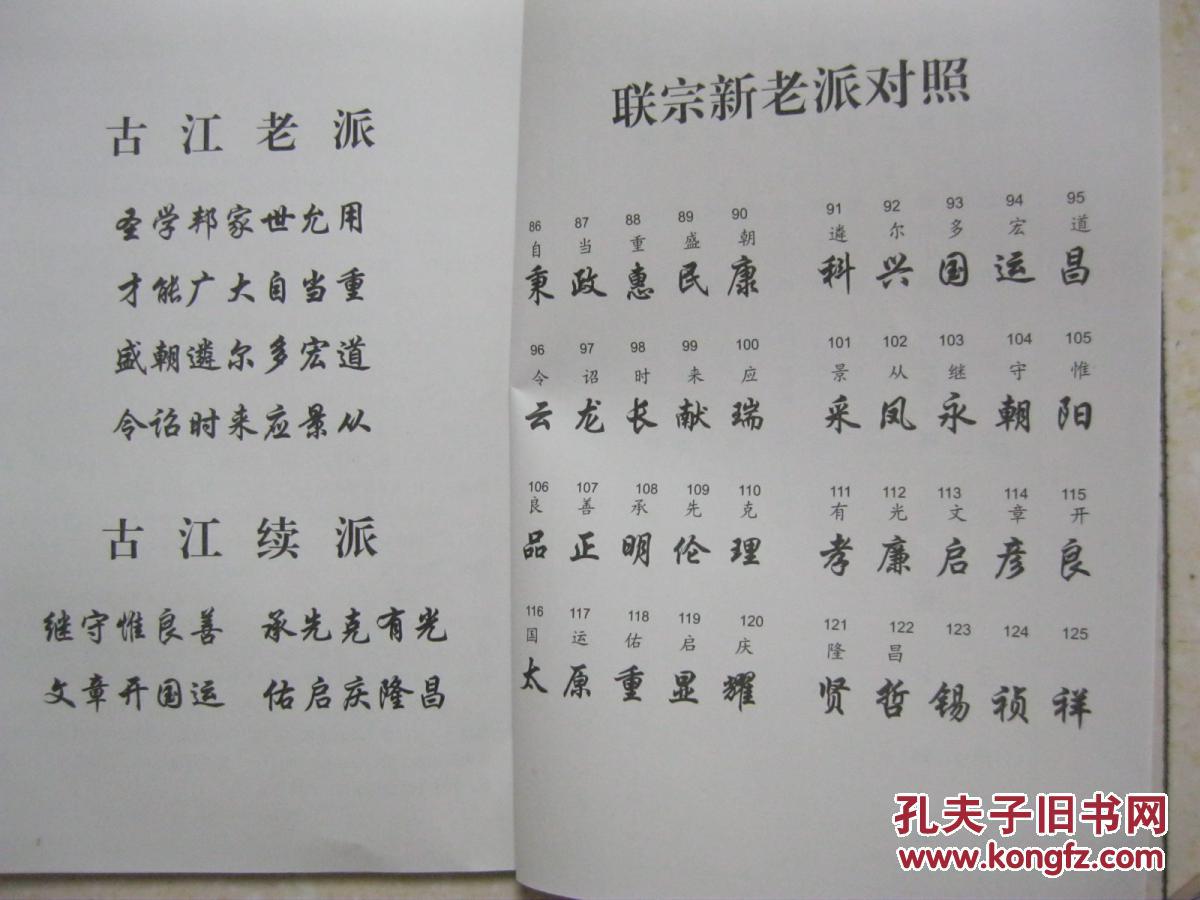 古江老派
圣学邦家世允用
才能广大自当重
盛朝遴尔多宏道
令诏时来应景从
古江续派
继守惟良善 承先克有光
文章开国运 佑启庆隆昌
联宗新老派对照
86 87 88 89 90 91 92 93 94 95
自 当 重 盛 朝 遴 尔 多 宏 道
秉 政 惠 民 康 科 兴 国 运 昌
96 97 98 99 100 101 102 103 104 105
令 诏 时 来 应 景 从 继 守 惟
云 龙 长 献 瑞 采 凤 永 朝 阳
106 107 108 109 110 111 112 113 114 115
良 善 承 先 克 有 光 文 章 开
品 正 明 伦 理 孝 廉 启 彦 良
116 117 118 119 120 121 122 123 124 125
国 运 佑 启 庆 隆 昌
太 原 重 显 耀 贤 哲 锡 祯 祥
孔夫子旧书网
www.kongfz.com